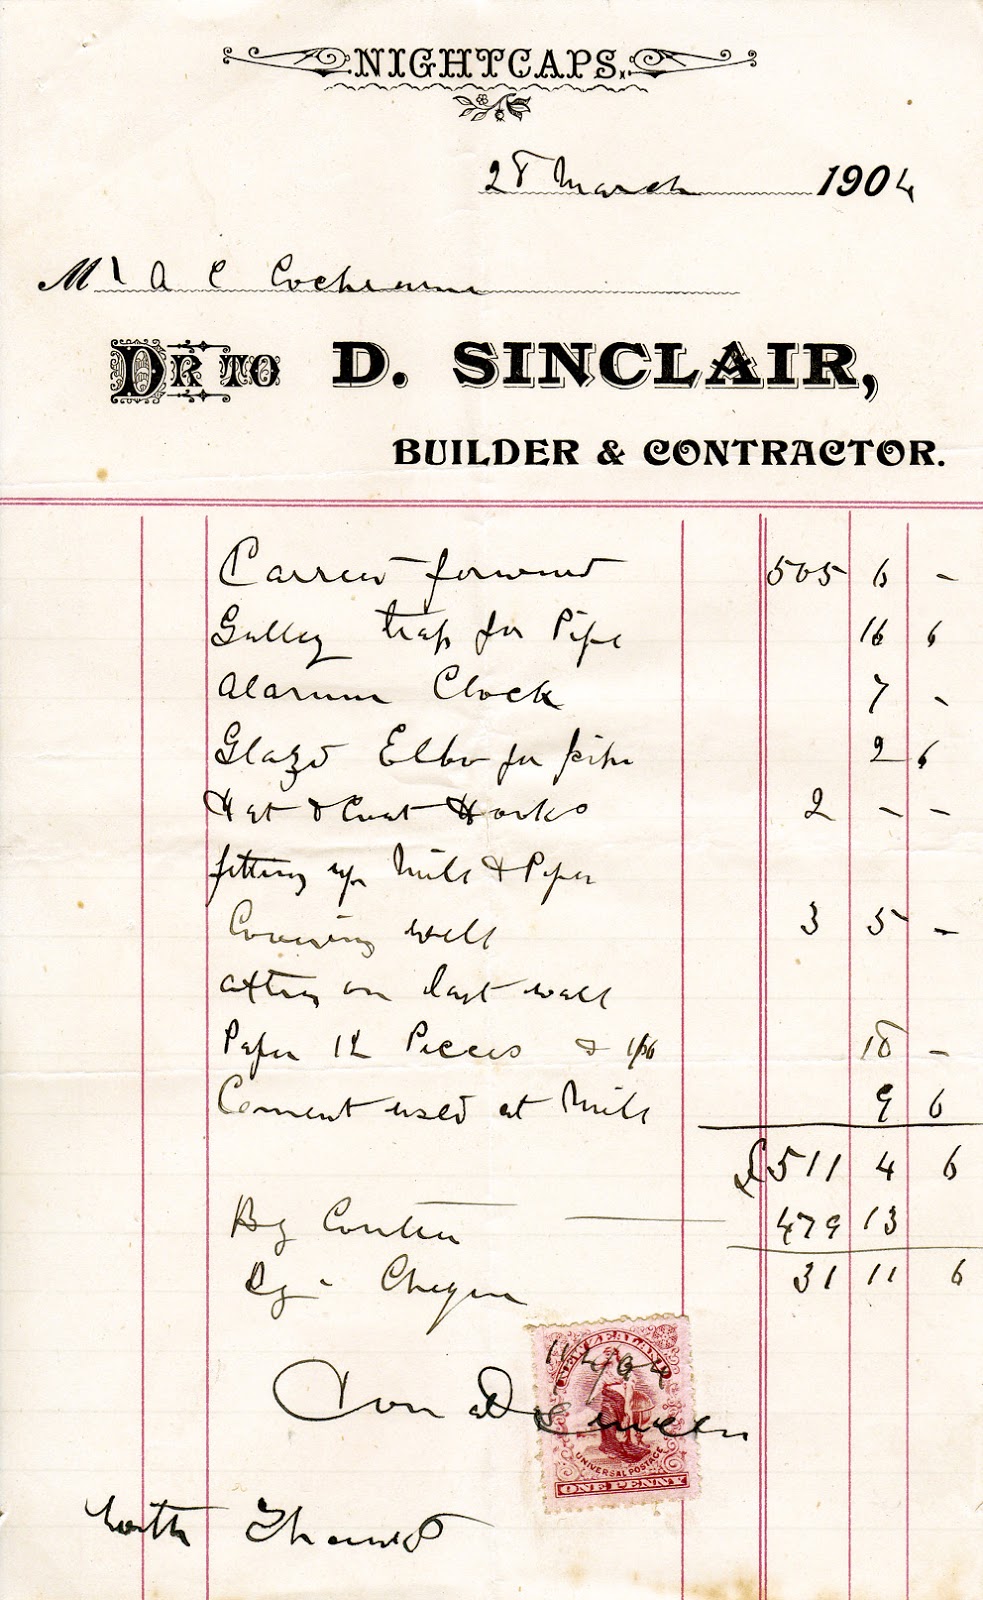 NIGHTCAPS.
28 March 1904
Mr A C Cochrane
DR TO D. SINCLAIR,
BUILDER & CONTRACTOR.
Carried forward 505 6 -
Gulley trap for Pipe 16 6
Alarum Clock 7 -
Glazd Elbo for pipe 2 6
Hat & Coat Hooks 2 - -
fitting up Mill & Piper
Covering well 3 5 -
on last wall
Paper 12 Pieces 1/6 18 -
Cement used at Mill 9 6
£511 4 6
By Contra 479 13
By Cheque 31 11 6
NEW ZEALAND
11/4/04
D Sinclair
UNIVERSAL POSTAGE
ONE PENNY
with Thanks